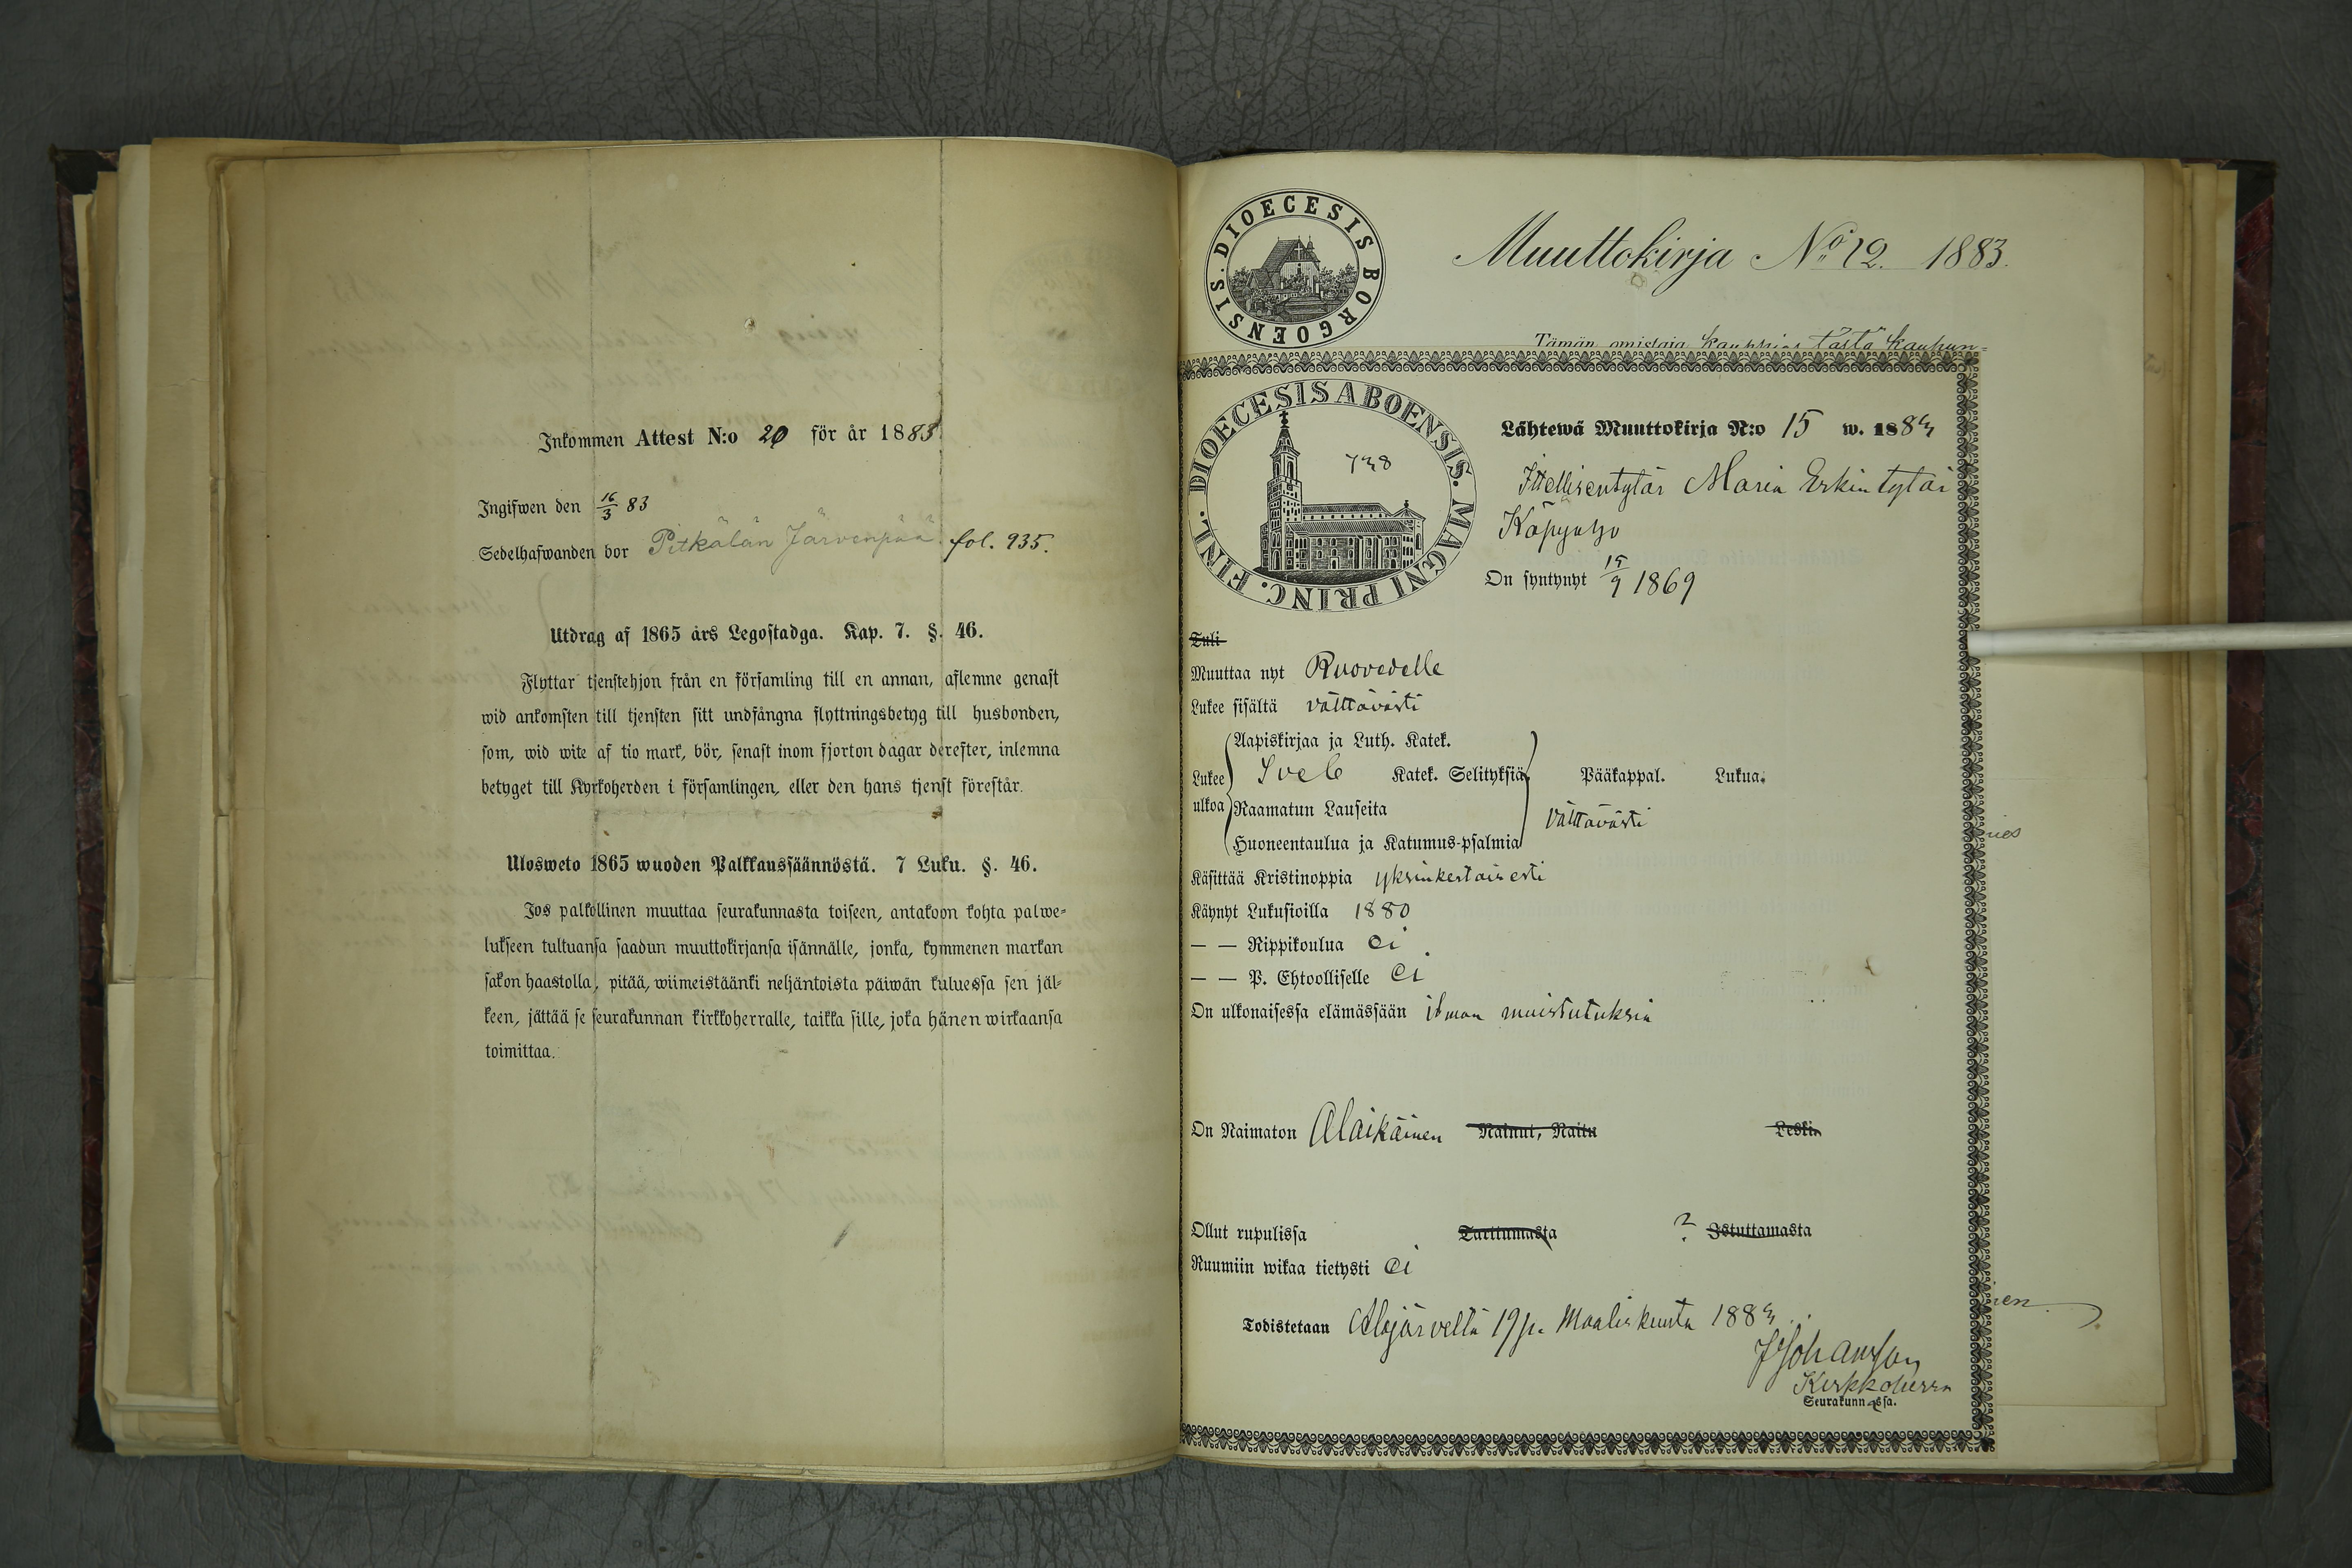 Inkommen Attest N:o 20 för år 1883
Ingifwen den 16/3 83
Sedelhafwanden bor Pitkälän Järvenpää fol. 935.
Utdrag af 1865 års Legostadga. Kap. 7. §. 46.
Flyttar tjenstehjon från en församling till en annan, aflemne genast
wid ankomsten till tjensten sitt undfångna flyttningsbetyg till husbonden,
som, wid wite af tio mark, bör, senast inom fjorton dagar derefter, inlemna
betyget till Kyrkoherden i församlingen, eller den hans tjenst förestår.
Ulosweto 1865 wuoden Palkkaussäännöstä. 7 Luku. §. 46.
Jos palkollinen muuttaa seurakunnasta toiseen, antakoon kohta palwe-
lukseen tultuansa saadun muuttokirjansa isännälle, jonka, kymmenen markan
sakon haastolla, pitää, wiimeistäänki neljäntoista päiwän kuluessa sen jäl-
keen, jättää se seurakunnan kirkkoherralle, taikka sille, joka hänen wirkaansa
toimittaa.
DIOECESIS BORGOENSIS.
Muuttokirja No 12. 1883.
Tämän omistaja kauppias tästä kaupun-
DIOECESIS ABOENSIS. MAGNI PRINC. FINL.
738
Lähtewä Muuttokirja N:o 15 w. 1883
Itellisentytär Maria Erkintytär
Käpyaho
On syntynyt 15/9 1869
Tuli
Muuttaa nyt Ruovedelle
Lukee sisältä välttävästi
Aapiskirjaa ja Luth. Katek.
Lukee Sveb Katek. Selityksiä Pääkappal. Lukua.
ulkoa Raamatun Lauseita välttävästi
Huoneentaulua ja Katumus-psalmia
Käsittää Kristinoppia yksinkertaisesti
Käynyt Lukusioilla 1880
— — Rippikoulua ei
— — P. Ehtoolliselle ei
On ulkonaisessa elämässään ilman muistutuksia
On Naimaton Alaikäinen Nainut, Naitu Leski
Ollut rupulissa Tarttumasta ? Istuttamasta
Ruumiin wikaa tietysti ei
Todistetaan Alajärveltä 19 p. Maaliskuuta 1883.
J Johansson
Kirkkoherra
Seurakunnassa.